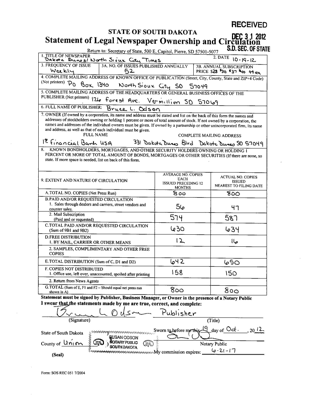 RECEIVED
DEC 31 2012
S.D. SEC. OF STATE
STATE OF SOUTH DAKOTA
Statement of Legal Newspaper Ownership and Circulation
Return to: Secretary of State, 500 E. Capitol, Pierre, SD 57501-5077
1. TITLE OF NEWSPAPER
Dakota Dunes/North Sioux City Times
2. DATE 10-19-12
3. FREQUENCY OF ISSUE
Weekly
3A. NO. OF ISSUES PUBLISHED ANNUALLY
52
3B. ANNUAL SUBSCRIPTION
PRICE
4. COMPLETE MAILING ADDRESS OF KNOWN OFFICE OF PUBLICATION (Street, City, County, State and ZIP+4 Code)
(Not printers) PO Box 1340 North Sioux City SD 57049
5. COMPLETE MAILING ADDRESS OF THE HEADQUARTERS OR GENERAL BUSINESS OFFICES OF THE
PUBLISHER (Not printer)
126 Forest Ave. Vermillion SD 57069
6. FULL NAME OF PUBLISHER Bruce L. Odson
7. OWNER (If owned by a corporation, its name and address must be stated and
FULL NAME COMPLETE MAILING ADDRESS
1st Financial Bank USA 331 Dakota Dunes Blvd Dakota Dunes SD 57049
8. KNOWN BONDHOLDERS, MORTGAGEES, AND OTHER SECURITY HOLDERS OWNING OR HOLDING 1
PERCENT OR MORE OF TOTAL AMOUNT OF BONDS, MORTGAGES OR OTHER SECURITIES (If there are none, so
state. If more space is needed, list on back of this form.
9. EXTENT AND NATURE OF CIRCULATION
AVERAGE NO. COPIES
EACH
ISSUED PRECEDING 12
MONTHS
ACTUAL NO. COPIES
ISSUED
NEAREST TO FILING DATE
A. TOTAL NO. COPIES (Net Press Run) 800 800
B. PAID AND/OR REQUESTED CIRCULATION
1. Sales through dealers and carriers, street vendors and
counter sales. 56 47
2. Mail Subscription
(Paid and or requested) 574 587
C. TOTAL PAID AND/OR REQUESTED CIRCULATION
(Sum of 9B1 and 9B2) 630 634
D. FREE DISTRIBUTION
1. BY MAIL, CARRIER OR OTHER MEANS 12 16
2. SAMPLES, COMPLIMENTARY AND OTHER FREE
COPIES
E. TOTAL DISTRIBUTION (Sum of C, D1 and D2) 642 650
F. COPIES NOT DISTRIBUTED
1. Office use, left over, unaccounted, spoiled after printing 158 150
2. Return from News Agents
G. TOTAL (Sum of E, F1 and F2 - Should equal net press run
shown in A) 800 800
Statement must be signed by Publisher, Business Manager, or Owner in the presence of a Notary Public
I swear that the statements made by me are true, correct, and complete:
Publisher
(Signature) (Title)
State of South Dakota
Sworn to before me this 19 day of Oct. 20 12
County of Union
SUSAN ODSON
NOTARY PUBLIC
SOUTH DAKOTA
Notary Public
(Seal)
My commission expires: 6-21-17